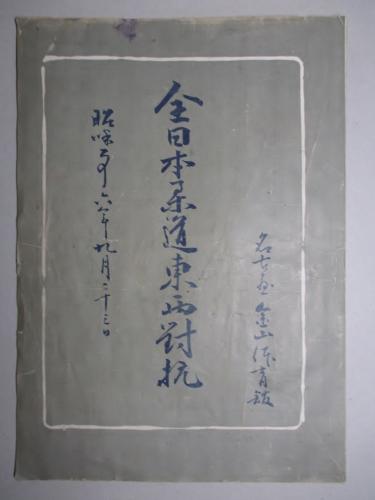 名古屋金山体育館
全日本柔道東西對抗
昭和廿六年九月二十三日